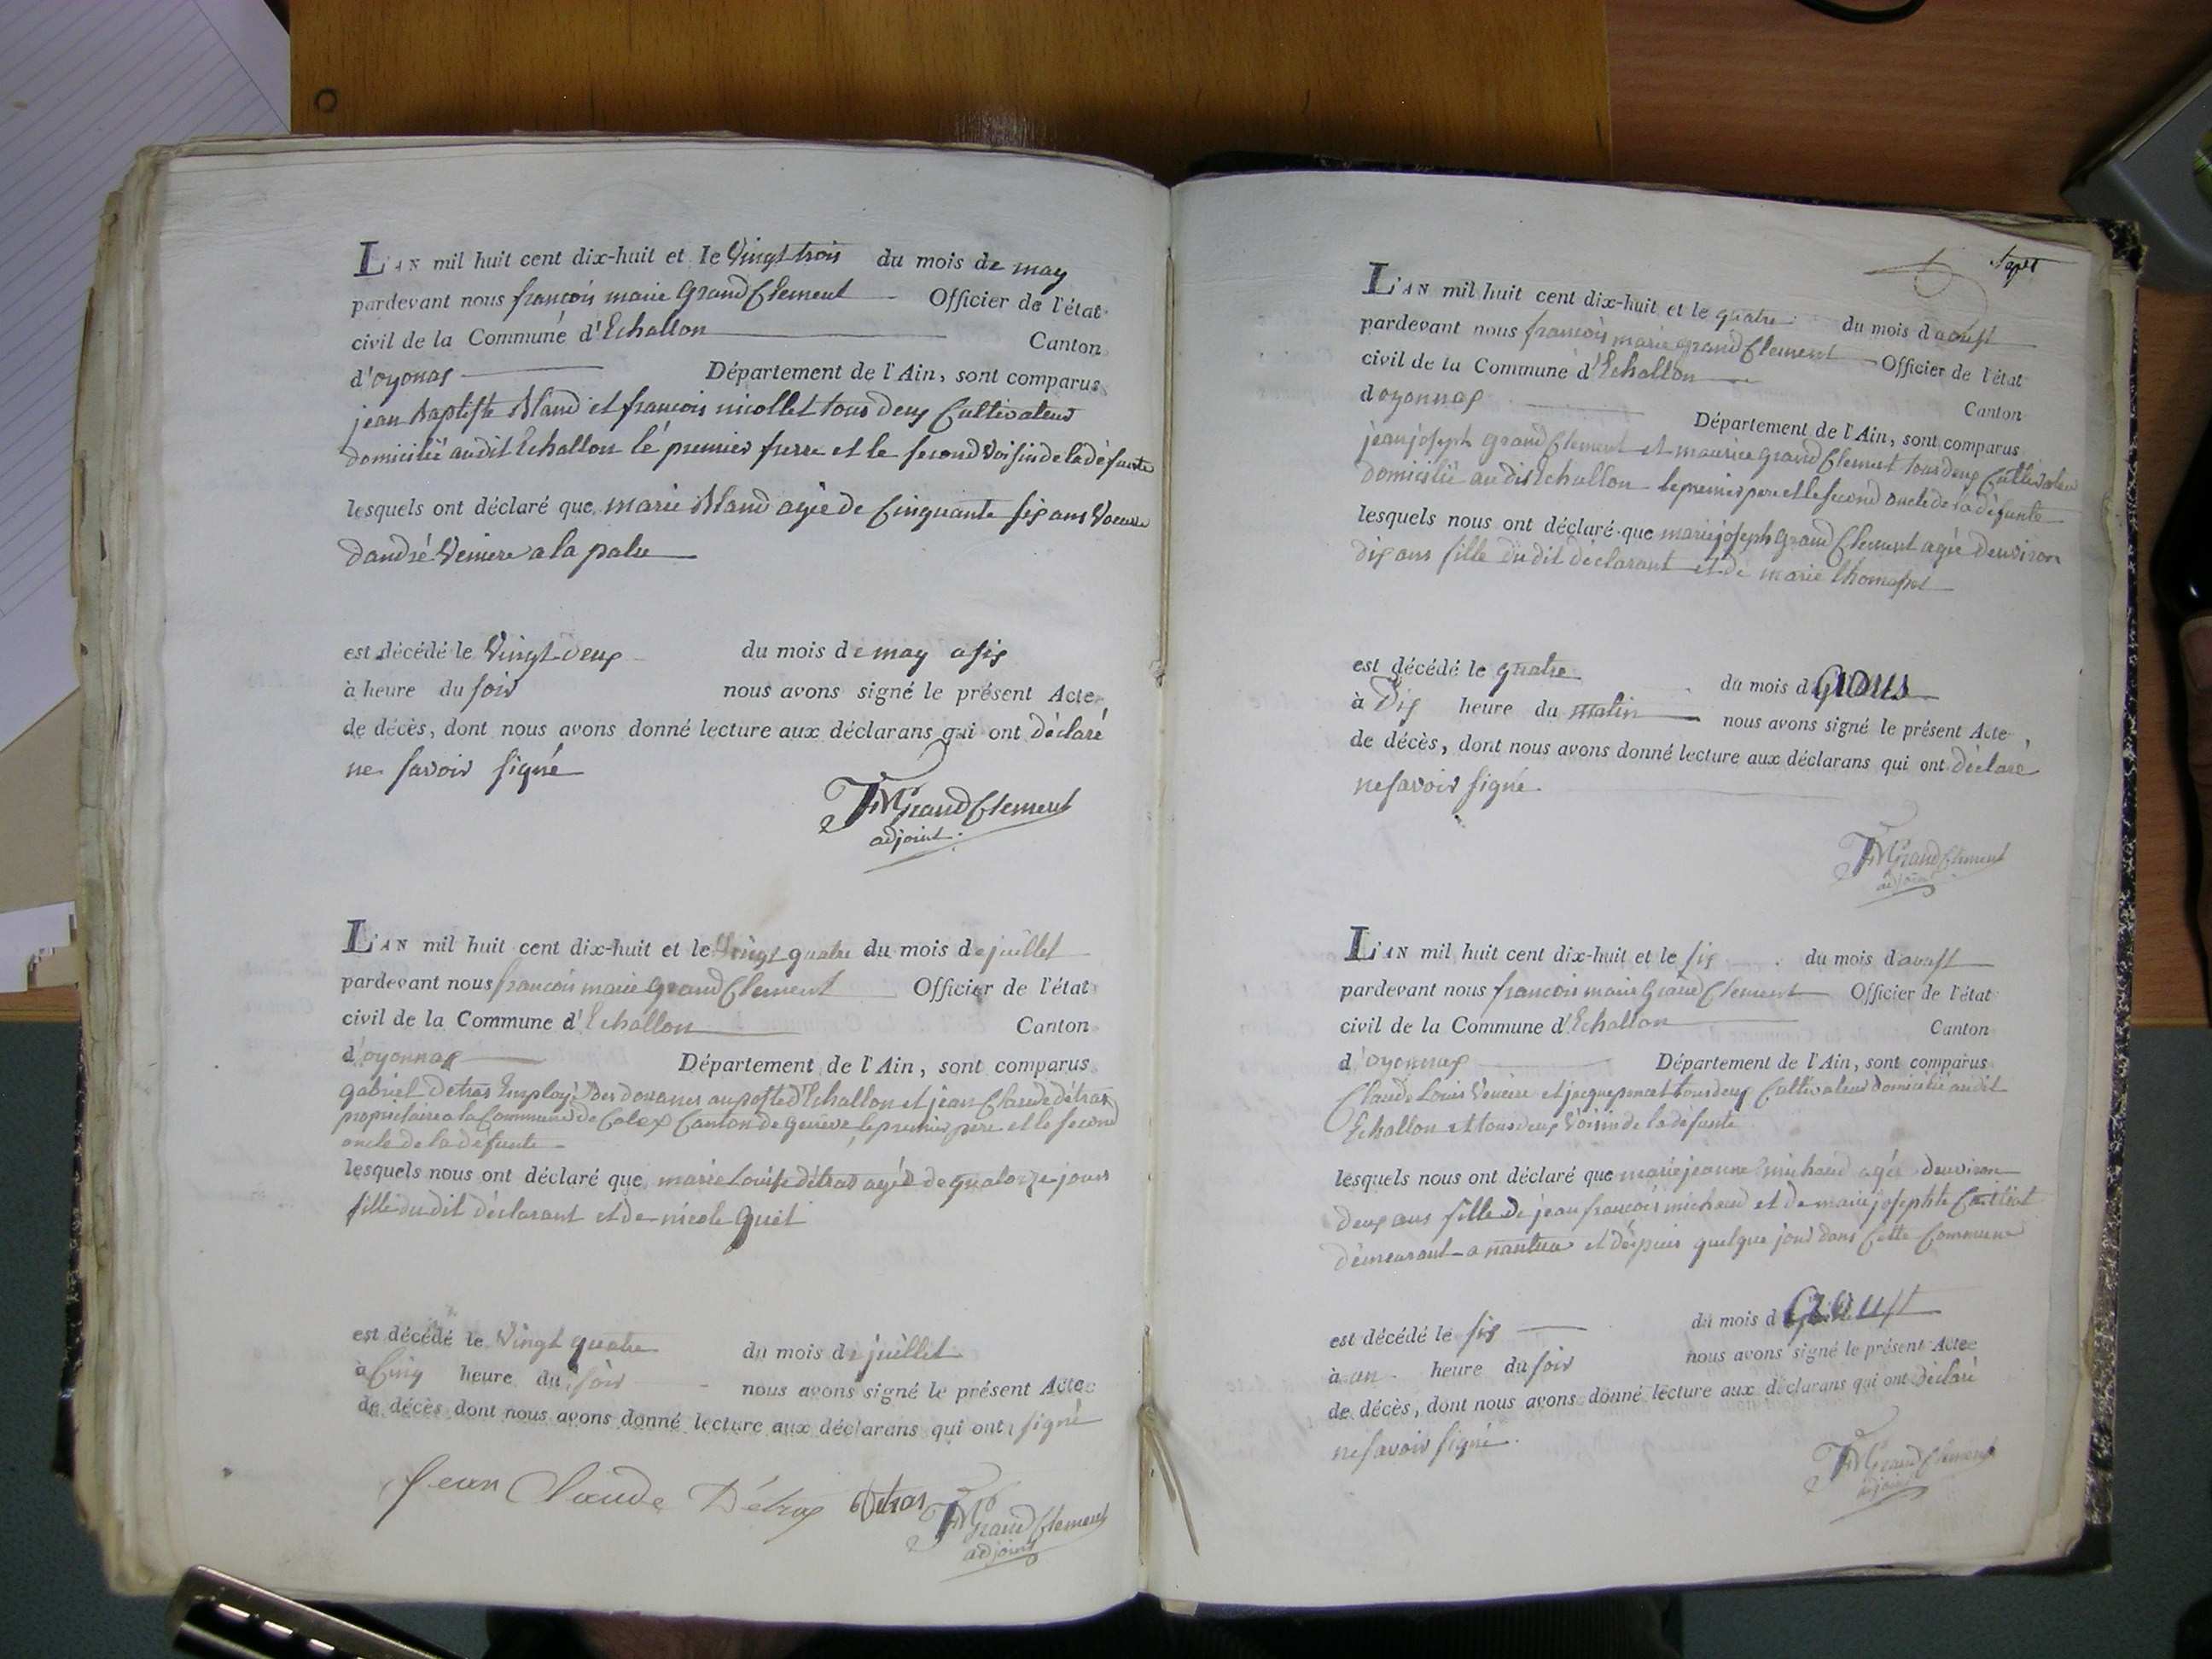 L'AN mil huit cent dix-huit et le Vingt trois du mois de may
pardevant nous françois marie Grand Clement Officier de l'état
civil de la Commune d'Echallon Canton
d'oyonax Département de l'Ain, sont comparus
jean Baptiste Bland et francois nicollet tous deux Cultivateur
domicilié audit Echallon le premier frere et le second Voisin de la défunte
lesquels ont déclaré que marie Bland agée de Cinquante six ans Veuve
dandré Veniere a la palu
est décédé le Vingt deux du mois de may a six
à heure du soir nous avons signé le présent Acte
de décès, dont nous avons donné lecture aux déclarans qui ont déclaré
ne savoir signé
FM Grand Clement
adjoint
L'AN mil huit cent dix-huit et le Vingt quatre du mois de juillet
pardevant nous francois marie Grand Clement Officier de l'état
civil de la Commune d'Echallon Canton
d'oyonnax Département de l'Ain, sont comparus
gabriel Detras Employé des douanes au poste d'Echallon et jean Claude détras
propriétaire a la Commune de Colex Canton de Geneve, le premier pere et le second
oncle de la défunte
lesquels nous ont déclaré que marie Louise détras agée de quatorze jours
fille du dit déclarant et de nicole Guet
est décédé le Vingt quatre du mois de juillet
à Cinq heure du soir nous avons signé le présent Acte
de décès dont nous avons donné lecture aux déclarans qui ont signé
Jean Claude Détras Detras FM Grand Clement
adjoint
L'AN mil huit cent dix-huit et le quatre du mois d'aoust
pardevant nous francois marie grand Clement Officier de l'état
civil de la Commune d'Echallon Canton
d'oyonnax Département de l'Ain, sont comparus
jean joseph grand Clement et maurice grand Clement tous deux Cultivateur
domicilié au dit Echallon le premier pere et le second oncle de la défunte
lesquels nous ont déclaré que marie joseph grand Clement agée denviron
dix ans fille du dit déclarant et de marie thomasset
est décédé le quatre du mois d'aous
à Dix heure du matin nous avons signé le présent Acte
de décès, dont nous avons donné lecture aux déclarans qui ont déclaré
ne savoir signé.
FM Grand Clement
adjoint
L'AN mil huit cent dix-huit et le six du mois d'aoust
pardevant nous francois marie Grand Clement Officier de l'état
civil de la Commune d'Echallon Canton
d'oyonnax Département de l'Ain, sont comparus
Claude Louis Veniere et jacque poncet tous deux Cultivateur domicilié au dit
Echallon et tous deux Voisin de la défunte
lesquels nous ont déclaré que marie jeanne michaud agée denviron
deux ans fille de jean francois michaud et de marie josephte
demeurant a nantua et depuis quelque jour dans Cette Commune
est décédé le six du mois d aoust
à un heure du soir nous avons signé le présent Acte
de décès, dont nous avons donné lecture aux déclarans qui ont déclaré
ne savoir signé.
FM Grand Clement
adjoint